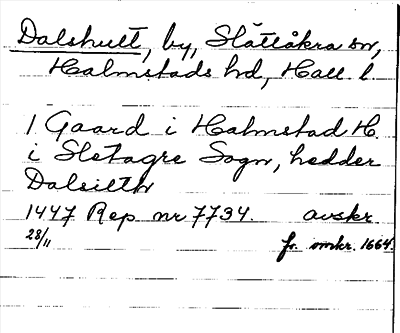 Dalshult, by, Slättåkra sn,
Halmstads hd, Hall l.
1 Gaard i Halmstad H.
i Sletagre Sogn, hedder
Dalsilth
1447 Rep nr 7734. avskr
28/11 fr. omkr. 1664.